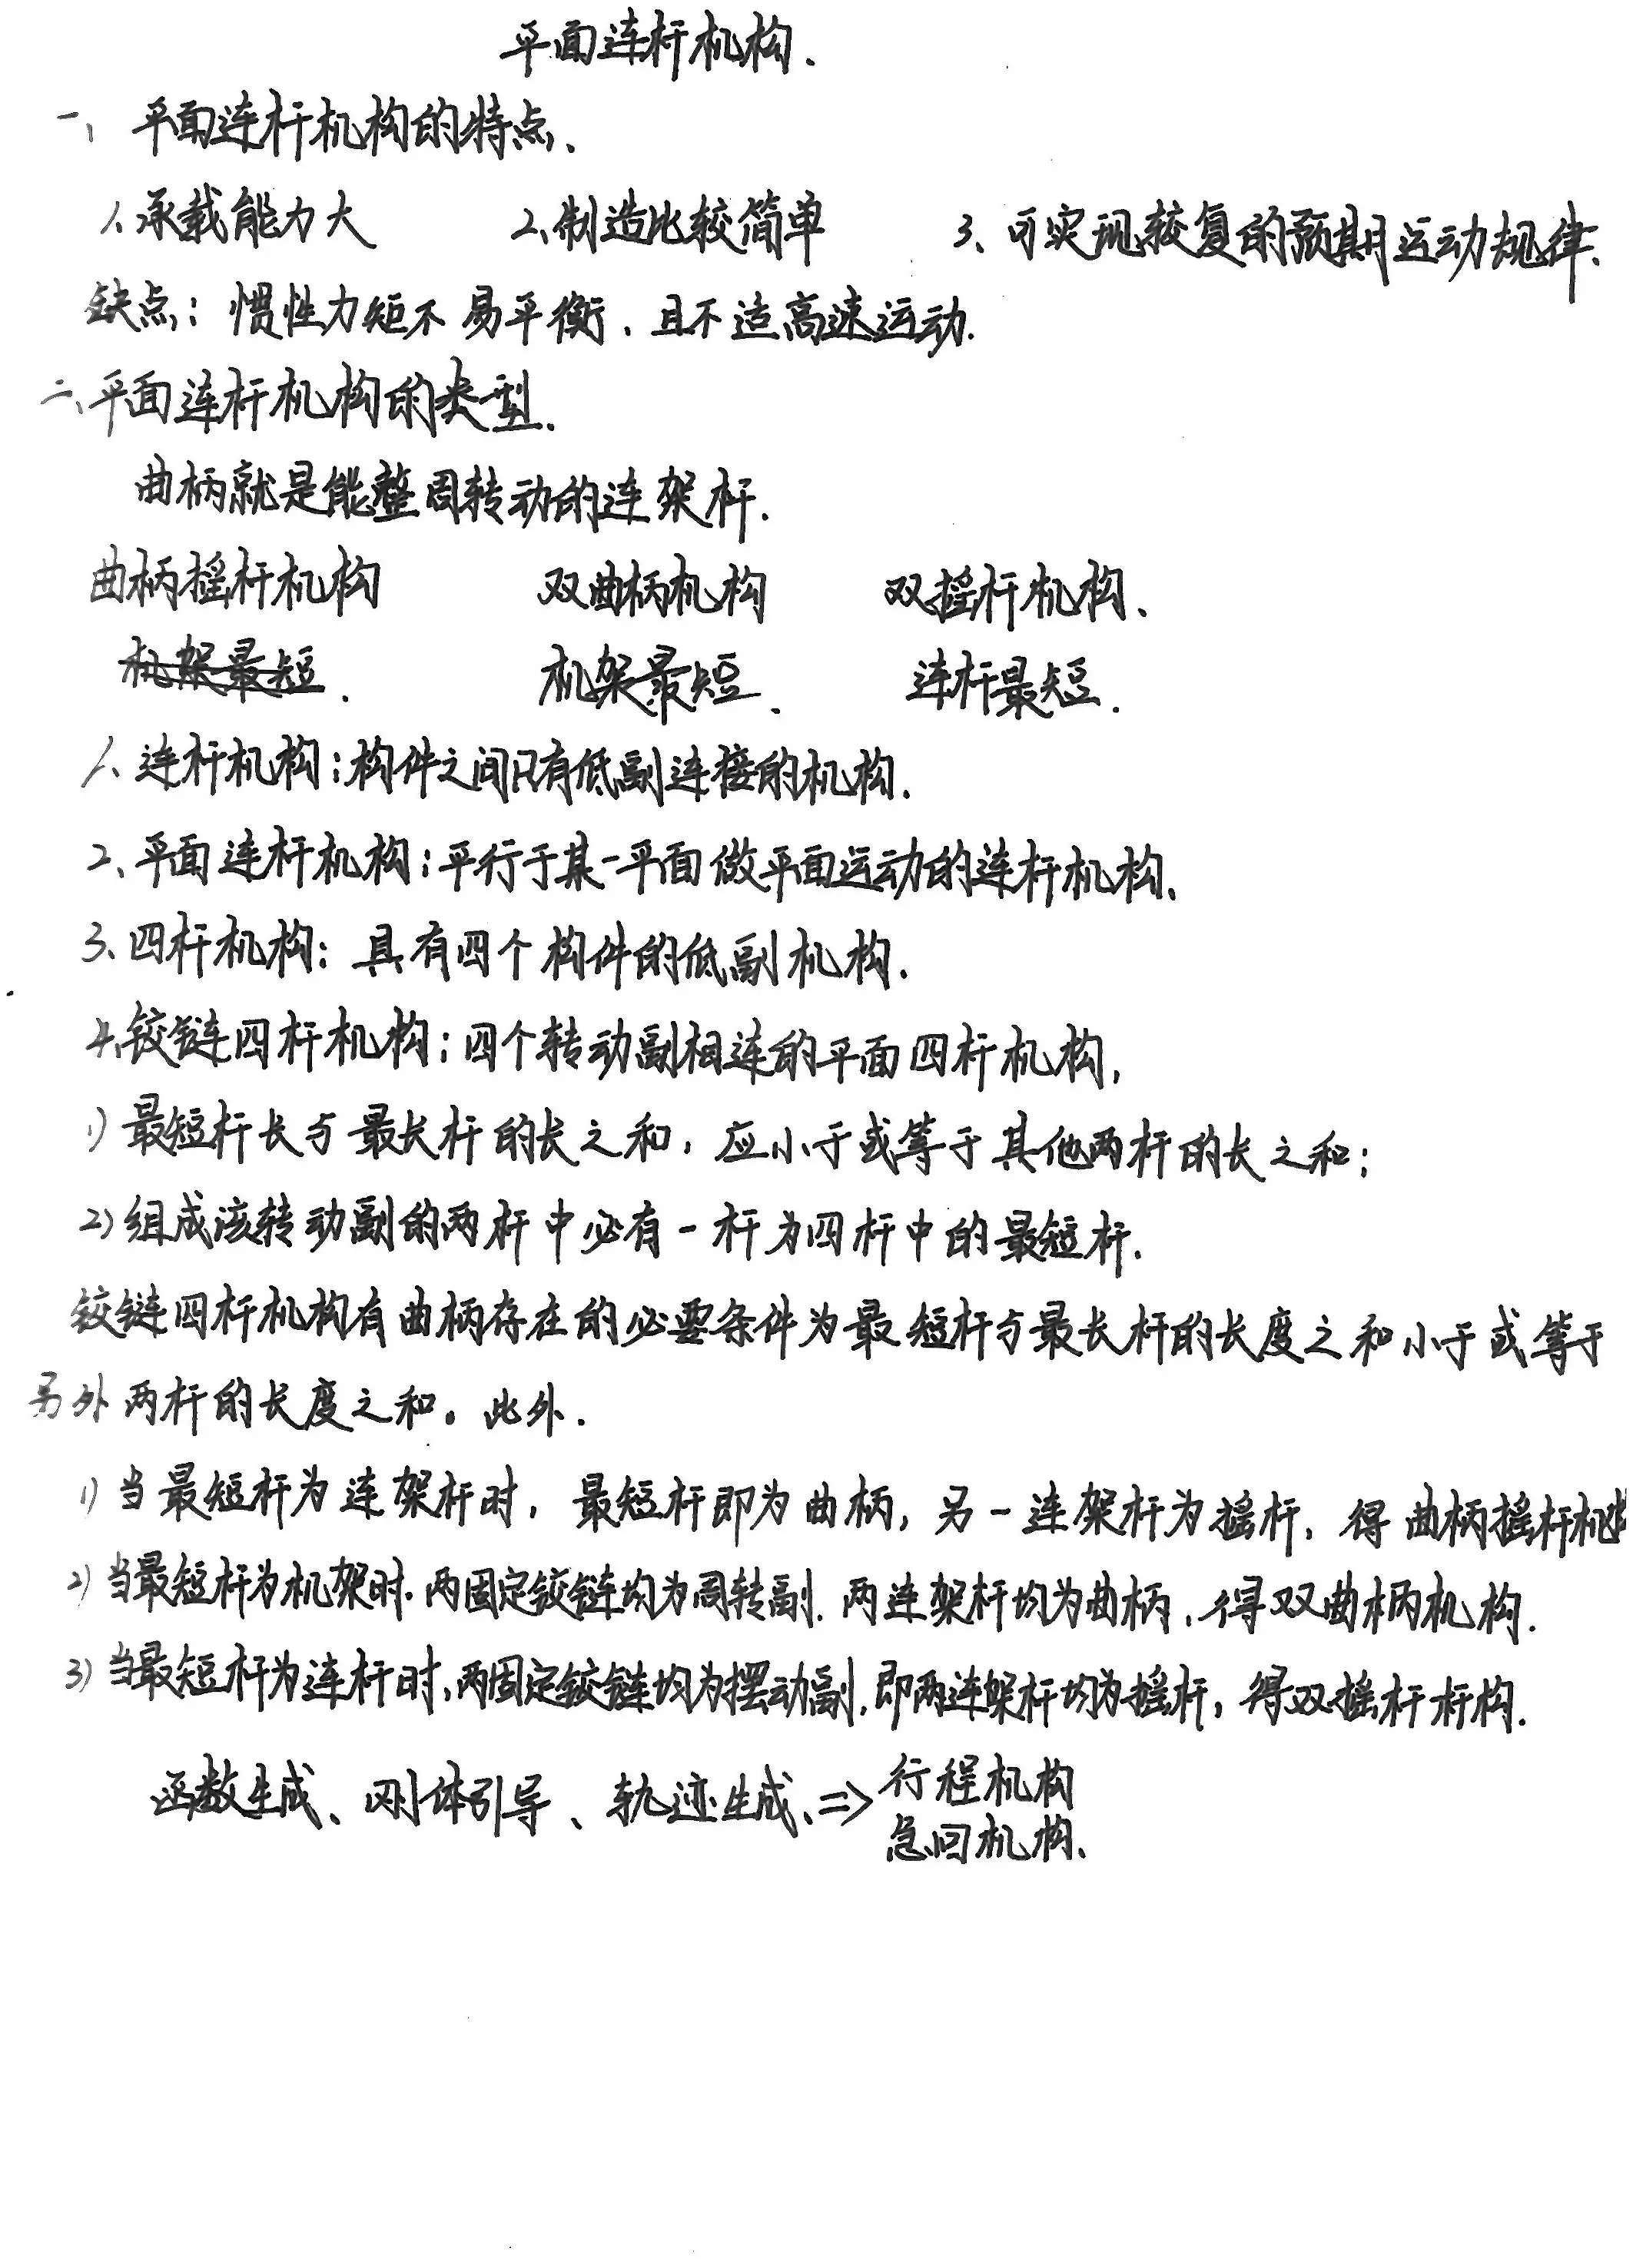 平面连杆机构.
一、平面连杆机构的特点、
1、承载能力大 2、制造比较简单 3、可实现较复的预期运动规律、
缺点：惯性力矩不易平衡、且不适高速运动.
二、平面连杆机构的类型.
曲柄就是能整周转动的连架杆.
曲柄摇杆机构 双曲柄机构 双摇杆机构、
机架最短. 机架最短. 连杆最短.
1、连杆机构：构件之间只有低副连接的机构.
2、平面连杆机构：平行于某一平面做平面运动的连杆机构、
3、四杆机构：具有四个构件的低副机构.
4、铰链四杆机构：四个转动副相连的平面四杆机构,
1) 最短杆长与最长杆的长之和，应小于或等于其他两杆的长之和；
2) 组成该转动副的两杆中必有一杆为四杆中的最短杆.
铰链四杆机构有曲柄存在的必要条件为最短杆与最长杆的长度之和小于或等于
另外两杆的长度之和。此外.
1) 当最短杆为连架杆时，最短杆即为曲柄，另一连架杆为摇杆，得曲柄摇杆机构
2) 当最短杆为机架时.两固定铰链均为周转副.两连架杆均为曲柄，得双曲柄机构.
3) 当最短杆为连杆时,两固定铰链均为摆动副,即两连架杆均为摇杆，得双摇杆杆构.
函数生成、刚体引导、轨迹生成、=> 行程机构
急回机构、